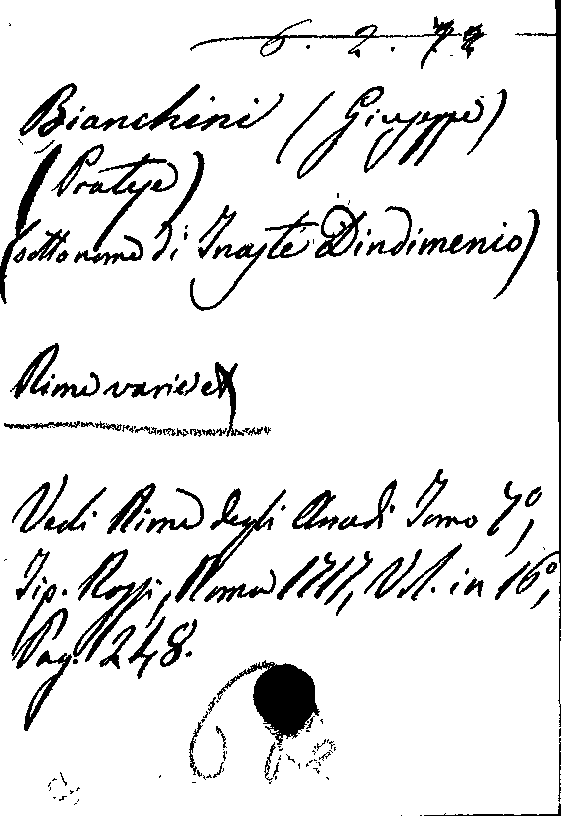 6. 2. 72
Bianchini (Giuseppe)
(Pratese)
(sotto nome di Inaste Dindimenio)
Rime varie
Vedi Rime degli Arcadi Tomo 7º,
Tip. Rossi, Roma 1717, Vol. in 16º,
Pag. 248.